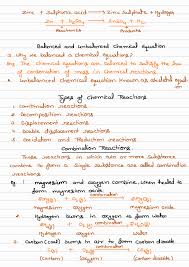 Zinc + Sulphuric acid → Zinc Sulphate + Hydrogen
Zn + H2SO4 → ZnSO4 + H2
Reactants Products
Balanced and Unbalanced Chemical Equation
Why we Balanced a chemical equation?
The chemical equations are Balanced to satisfy the law of conservation of mass in Chemical reactions.
Unbalanced chemical equation known as skeletal equation
Types of Chemical Reactions
1 Combination reactions
2 Decomposition reactions
3 Displacement reactions
4 Double displacement reactions
5 Oxidation and Reduction reactions
Combination Reactions
Those reactions in which two or more substance
combine to form a single substance are called combination
reactions.
Eg. 1 magnesium and oxygen combine, when heated to
form magnesium oxide
combination
magnesium oxide
Hydrogen burns in oxygen to form water
combination
Carbon (coal) burns in air to form carbon dioxide
combination
carbon dioxide